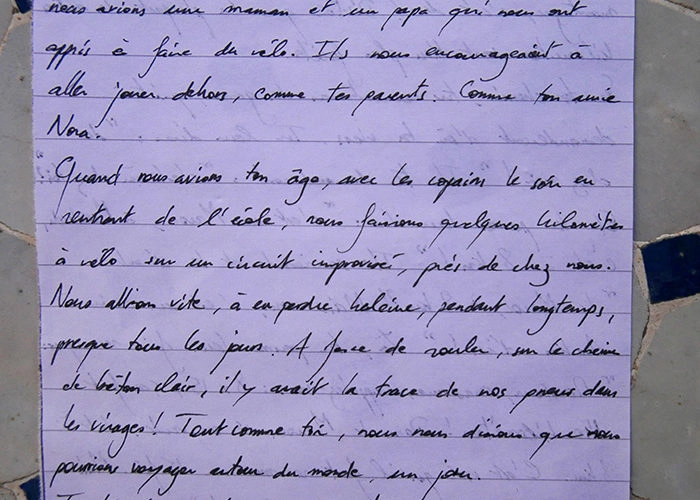 nous avions une maman et un papa qui nous ont
appris à faire du vélo. Ils nous encourageaient à
aller jouer dehors, comme tes parents. Comme ton amie
Nora.
Quand nous avions ton âge, avec les copains le soir en
rentrant de l'école, nous faisions quelques kilomètres
à vélo sur un circuit improvisé, près de chez nous.
Nous allions vite, à en perdre haleine, pendant longtemps,
presque tous les jours. A force de rouler, sur le chemin
de béton clair, il y avait la trace de nos pneus dans
les virages! Tout comme toi, nous nous disions que nous
pourrions voyager autour du monde, un jour.